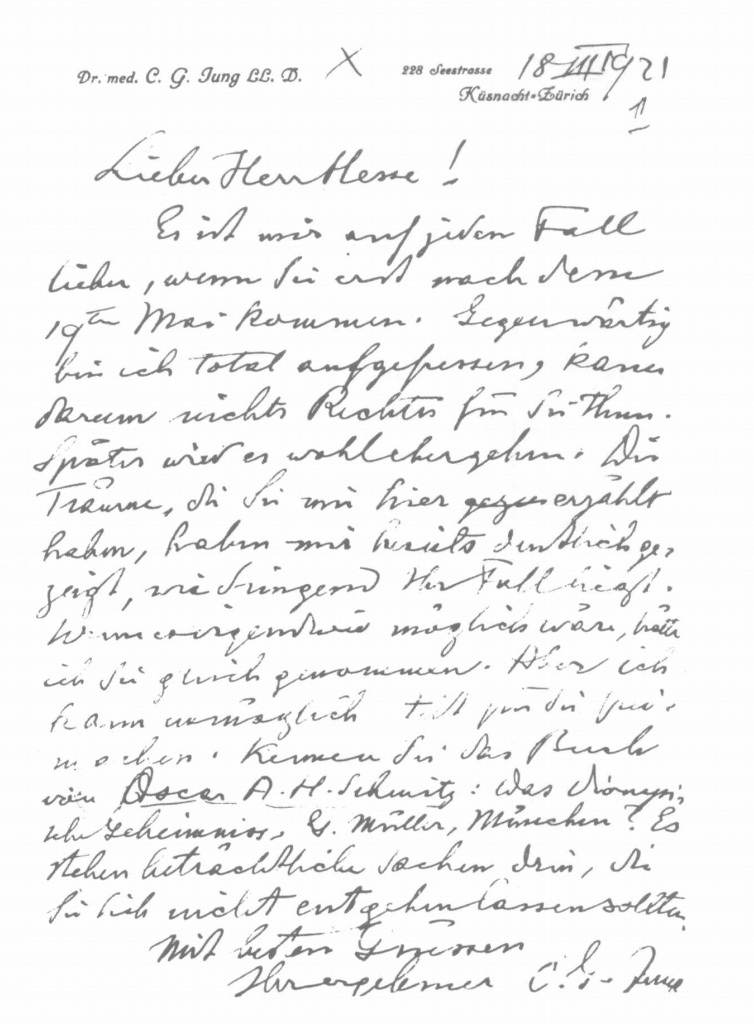 Dr. med. C. G. Jung LL. D.
228 Seestrasse
Küsnacht-Zürich
18 III 1921
Lieber Herr Hesse!
Es ist mir auf jeden Fall
lieber, wenn Sie erst nach dem
19ten Mai kommen. Gegenwärtig
bin ich total aufgefressen, kann
darum nichts Rechtes für Sie thun.
Später wird es wohl eher gehen. Die
Träume, die Sie mir hier erzählt
haben, haben mir bereits deutlich ge-
zeigt, wie dringend Ihr Fall liegt.
Wenn es irgendwie möglich wäre, hätte
ich Sie gleich genommen. Aber ich
kann unmöglich Zeit für Sie frei-
machen. Kennen Sie das Buch
von Oscar A. H. Schmitz: Das Dionysi-
sche Geheimniss, G. Müller, München? Es
stehen beträchtliche Sachen drin, die
Sie sich nicht entgehen lassen sollten.
Mit besten Grüssen
Ihr ergebener C. G. Jung